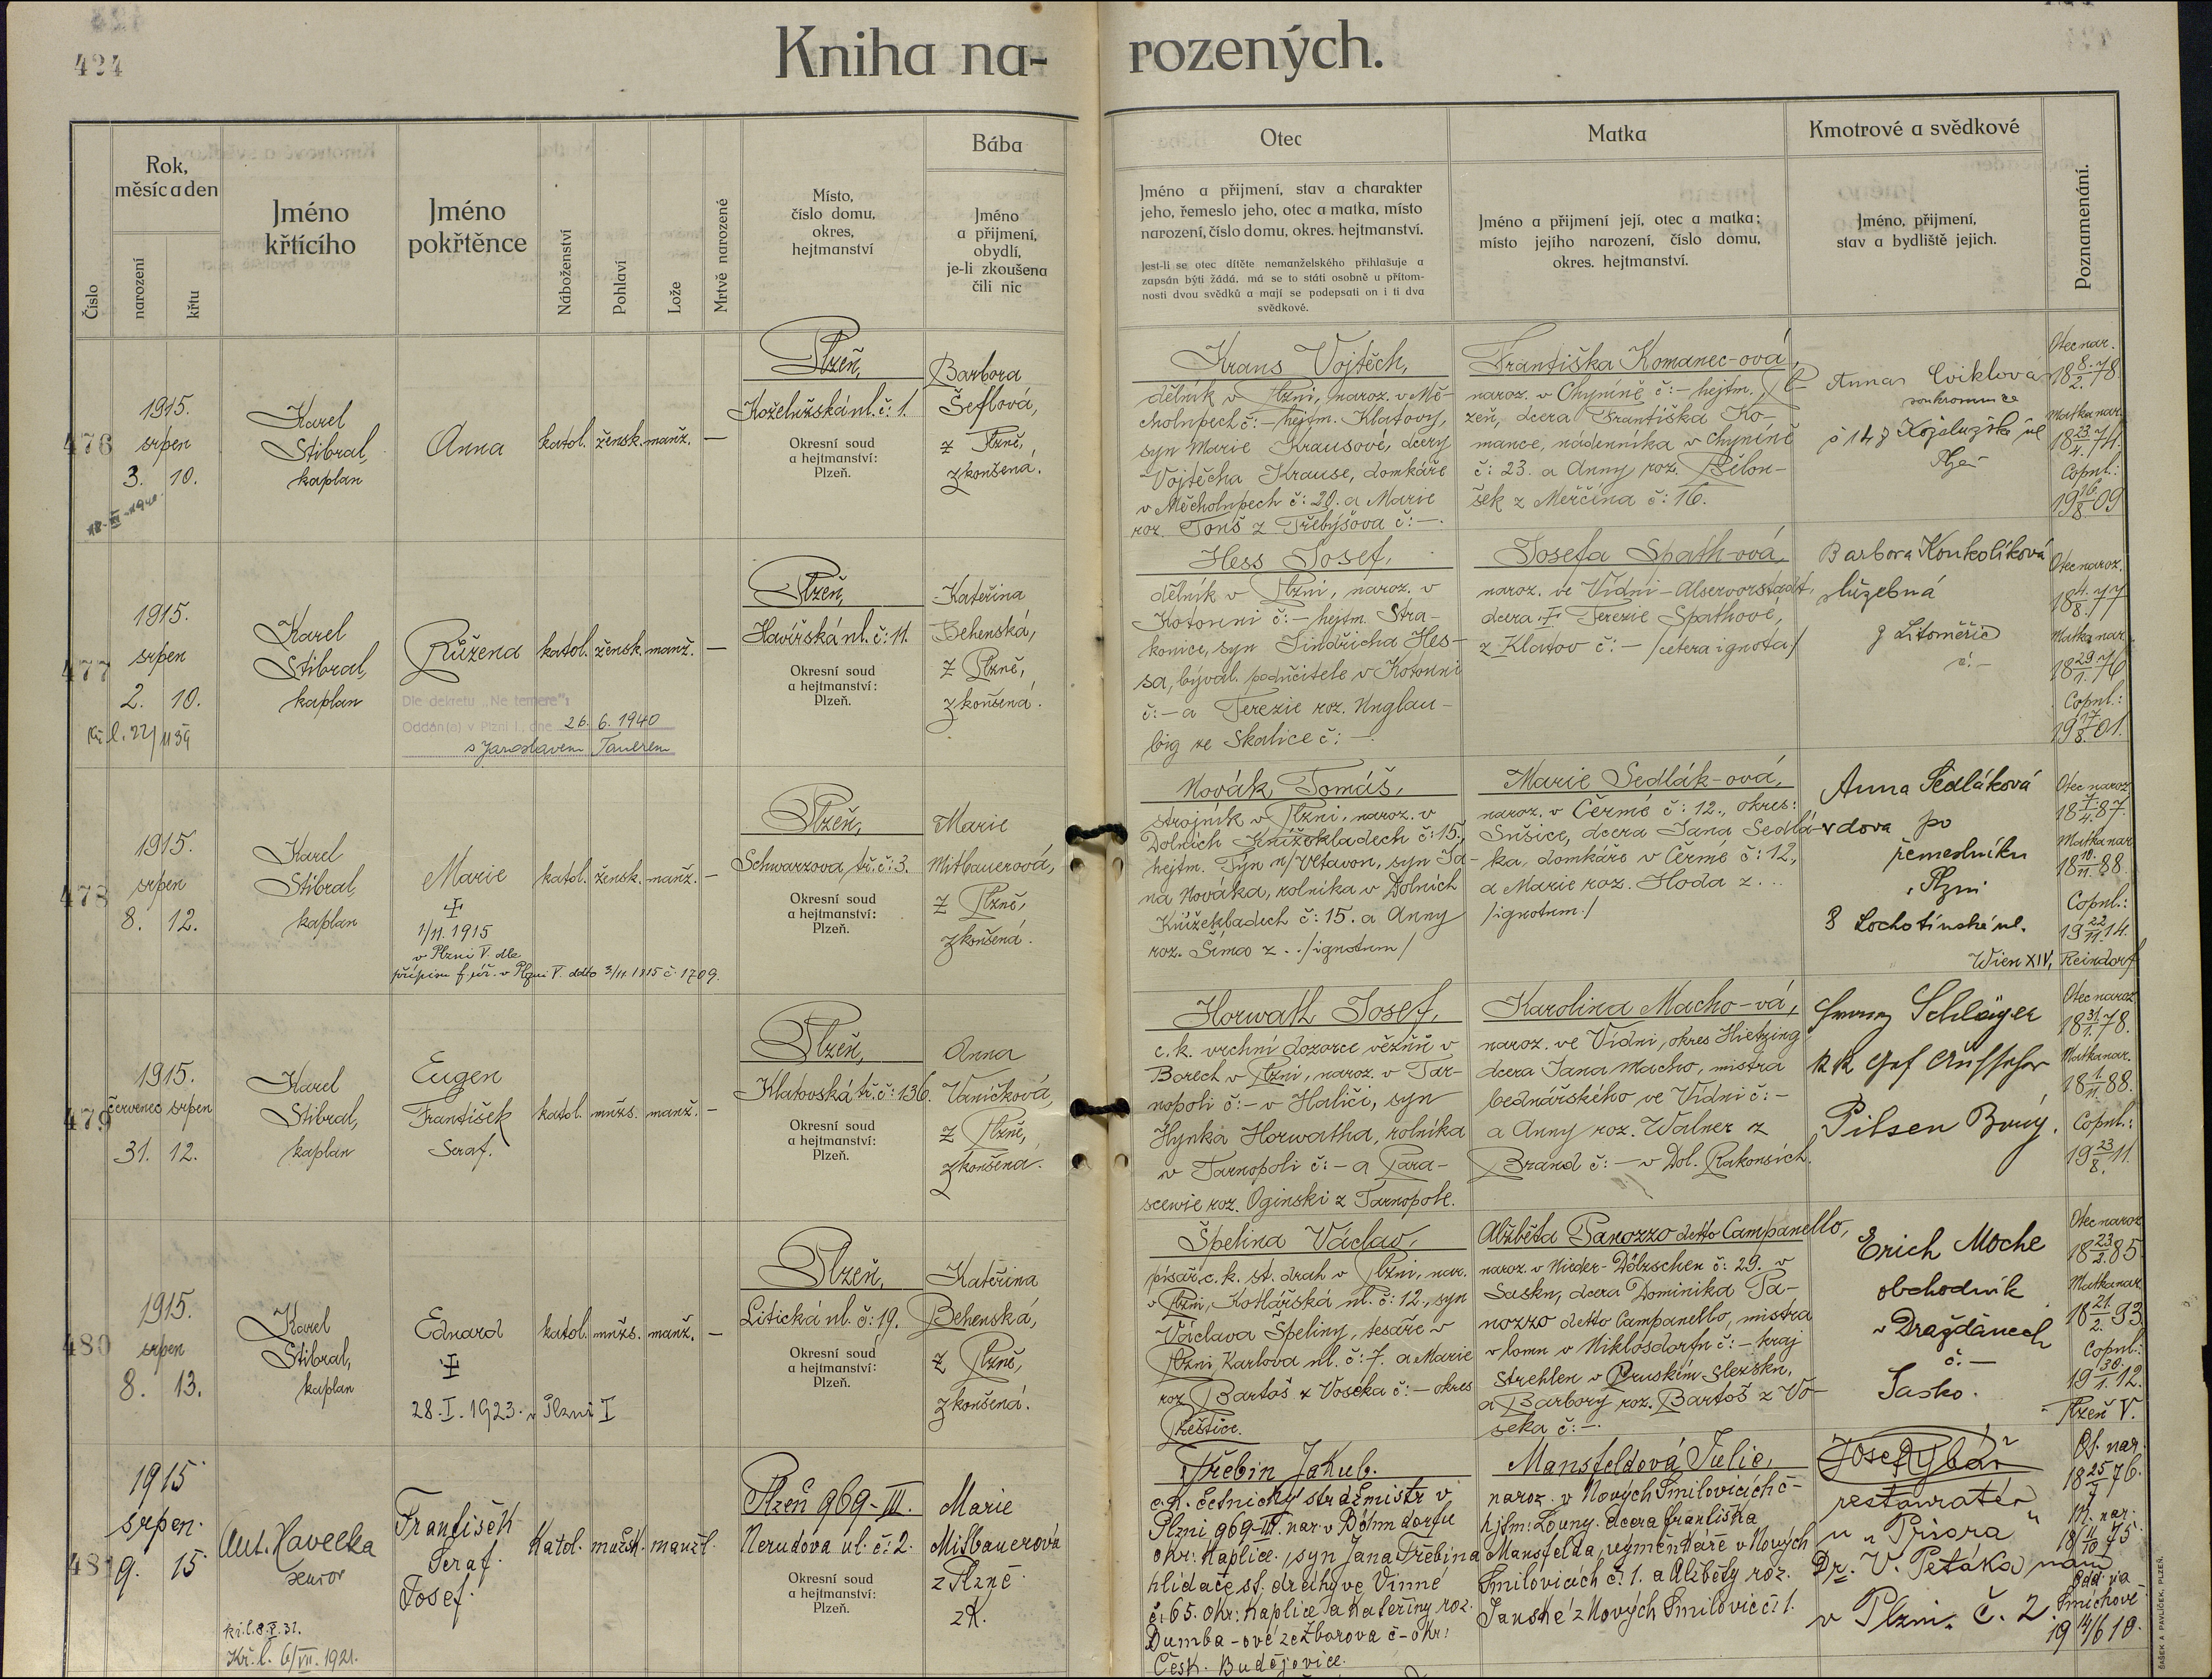 424
Kniha na-
rozených.
Číslo
Rok,
měsíc a den
narození
křtu
Jméno
křtícího
Jméno
pokřtěnce
Náboženství
Pohlaví
Lože
Mrtvě narozené
Místo,
číslo domu,
okres,
hejtmanství
Bába
Jméno
a přijmení,
obydlí,
je-li zkoušena
čili nic
Otec
Jméno a přijmení, stav a charakter
jeho, řemeslo jeho, otec a matka, místo
narození, číslo domu, okres. hejtmanství.
Jest-li se otec dítěte nemanželského přihlašuje a
zapsán býti žádá, má se to státi osobně u přítom-
nosti dvou svědků a mají se podepsati on i ti dva
svědkové.
Matka
Jméno a přijmení její, otec a matka;
místo jejího narození, číslo domu,
okres. hejtmanství.
Kmotrové a svědkové
Jméno, přijmení,
stav a bydliště jejich.
Poznamenání.
476
1915.
srpen
3. 10.
Karel
Stibral,
kaplan
Anna
katol. žensk. manž. —
Plzeň,
Koželužská ul. č: 1.
Okresní soud
a hejtmanství:
Plzeň.
Barbora
Šeflová,
z Plzně,
zkoušená.
Kraus Vojtěch,
dělník v Plzni, naroz. v Mě-
cholupech č:— hejtm. Klatovy,
syn Marie Krausové, dcery
Vojtěcha Krause, domkáře
v Měcholupech č: 20. a Marie
roz. Touš z Třebýšova č:—.
Františka Komanec-ová,
naroz. v Chyníně č:— hejtm. Pl-
zeň, dcera Františka Ko-
mance, nádenníka v Chyníně
č: 23. a Anny roz. Bělou-
šek z Merčína č: 16.
Anna Cviklová
soukromnice
Plzeň
Otec nar.
18 8./2. 78.
Matka nar.
18 23./4. 74.
Copul.:
19 16./8. 09
477
1915.
srpen
2. 10.
Karel
Stibral,
kaplan
Růžena
Dle dekretu „Ne temere":
Oddán(a) v Plzni I, dne 26. 6. 1940
s Jaroslavem Tauerem
katol. žensk. manž. —
Plzeň,
Havířská ul. č: 11.
Okresní soud
a hejtmanství:
Plzeň.
Kateřina
Behenská,
z Plzně,
zkoušená.
Hess Josef,
dělník v Plzni, naroz. v
Kotouni č:— hejtm. Stra-
konice, syn Jindřicha Hes-
sa, býval. podučitele v Kotouni
č:— a Terezie roz. Unglau-
big ze Skalice č:—
Josefa Spath-ová,
naroz. ve Vídni - Alservorstadt,
dcera † Terezie Spathové,
z Klatov č:— /cetera ignota/
Barbora Koukolíková
služebná
z Litoměřic
č.—
Otec naroz.
18 4./8. 77
Matka nar.
18 29./1. 76
Copul.:
19 17./8. 01.
478
1915.
srpen
8. 12.
Karel
Stibral,
kaplan
Marie
†
1/11. 1915
v Plzni V. dle
přípisu f. úř. v Plzni V. ddto 3/11 1915 č. 1709.
katol. žensk. manž. —
Plzeň,
Schwarzova tř. č: 3.
Okresní soud
a hejtmanství:
Plzeň.
Marie
Mitbauerová,
z Plzně,
zkoušená.
Novák Tomáš,
strojník v Plzni, naroz. v
Dolních Knížekladech č: 15,
hejtm. Týn n/Vltavou, syn Ja-
na Nováka, rolníka v Dolních
Knížekladech č: 15. a Anny
roz. Šíma z .. /ignotum/
Marie Sedlák-ová,
naroz. v Čermé č: 12., okres:
Sušice, dcera Jana Sedlá-
ka, domkáře v Čermé č: 12,
a Marie roz. Hoda z ...
/ignotum./
Anna Sedláková
vdova po
řemeslníku
v Plzni
8 Lochotínské ul.
Otec naroz.
18 7./4. 87.
Matka nar.
18 10./11. 88.
Copul.:
19 22./11. 14.
479
1915.
červenec srpen
31. 12.
Karel
Stibral,
kaplan
Eugen
František
Seraf.
katol. mužs. manž. —
Plzeň,
Klatovská tř. č: 136.
Okresní soud
a hejtmanství:
Plzeň.
Anna
Vaníčková,
z Plzně,
zkoušená.
Horwath Josef,
c. k. vrchní dozorce vězňů v
Borech v Plzni, naroz. v Tar-
nopoli č:— v Haliči, syn
Hynka Horwatha, rolníka
v Tarnopoli č:— a Para-
scewie roz. Oginski z Tarnopole.
Karolina Macho-vá,
naroz. ve Vídni, okres Hietzing
dcera Jana Macho, mistra
bednářského ve Vídni č:—
a Anny roz. Walner z
Brand č:— v Dol. Rakousích.
Wien XIV, Reindorf
Schläger
Pilsen
Otec naroz.
18 31./1. 78.
Matka nar.
18 1./11. 88.
Copul.:
19 23./8. 11.
480
1915.
srpen
8. 13.
Karel
Stibral,
kaplan
Eduard
†
28. I. 1923. v Plzni I
katol. mužs. manž. —
Plzeň,
Litická ul. č: 19.
Okresní soud
a hejtmanství:
Plzeň.
Kateřina
Behenská,
z Plzně,
zkoušená.
Špelina Václav,
písař c. k. st. drah v Plzni, nar.
v Plzni, Kotlářská ul. č: 12., syn
Václava Špeliny, tesaře v
Plzni, Karlova ul. č: 7. a Marie
roz. Bartoš z Voséka č:— okres
Přeštice.
Alžběta Panozzo detto Campanello,
naroz. v Nieder-Dölzschen č: 29. v
Sasku, dcera Dominika Pa-
nozzo detto Campanello, mistra
v lomu v Niklosdorfu č:— kraj
Strehlen v Pruském Slezsku,
a Barbory roz. Bartoš z Vo-
seka č:—.
Erich Moche
obchodník
v Dražďanech
č.—
Sasko.
Otec naroz.
18 23./2. 85.
Matka nar.
18 21./2. 93.
Copul.:
19 30./1. 12.
Plzeň V.
481
1915
srpen
9. 15.
Ant. Havelka
senior
kř. l. 8. X. 31.
Kř. l. 6/VII. 1921.
František
Seraf.
Josef.
Katol. mužsk. manžl.
Plzeň 969-III.
Nerudova ul. č: 2.
Okresní soud
a hejtmanství:
Plzeň.
Marie
Mitbauerová
z Plzně
zk.
Třebin Jakub.
c. k. četnický strážmistr v
Plzni 969-III. nar. v Böhmdorfu
okr: Kaplice, syn Jana Třebina
hlídače st. dráhy ve Vinné
č: 65. okr: Kaplice a Kateřiny roz.
Dumba-ové ze Zborova č- okr:
Česk. Budějovice.
Mansfeldová Julie,
naroz. v Nových Smilovicích č-
hjtm: Louny. dcera Františka
Mansfelda, výměnkáře v Nových
Smilovicích č: 1. a Alžběty roz.
Janské z Nových Smilovic č: 1.
Josef Rybář
restauratér
u „Priora"
Dr. V. Petáka nám
v Plzni. č. 2.
Ot. nar.
18 25/7 76.
M. nar.
18 11/10 75
Odd. na
Smíchově
19 14/6 10.
ŠAŠEK A PAVLÍČEK, PLZEŇ.